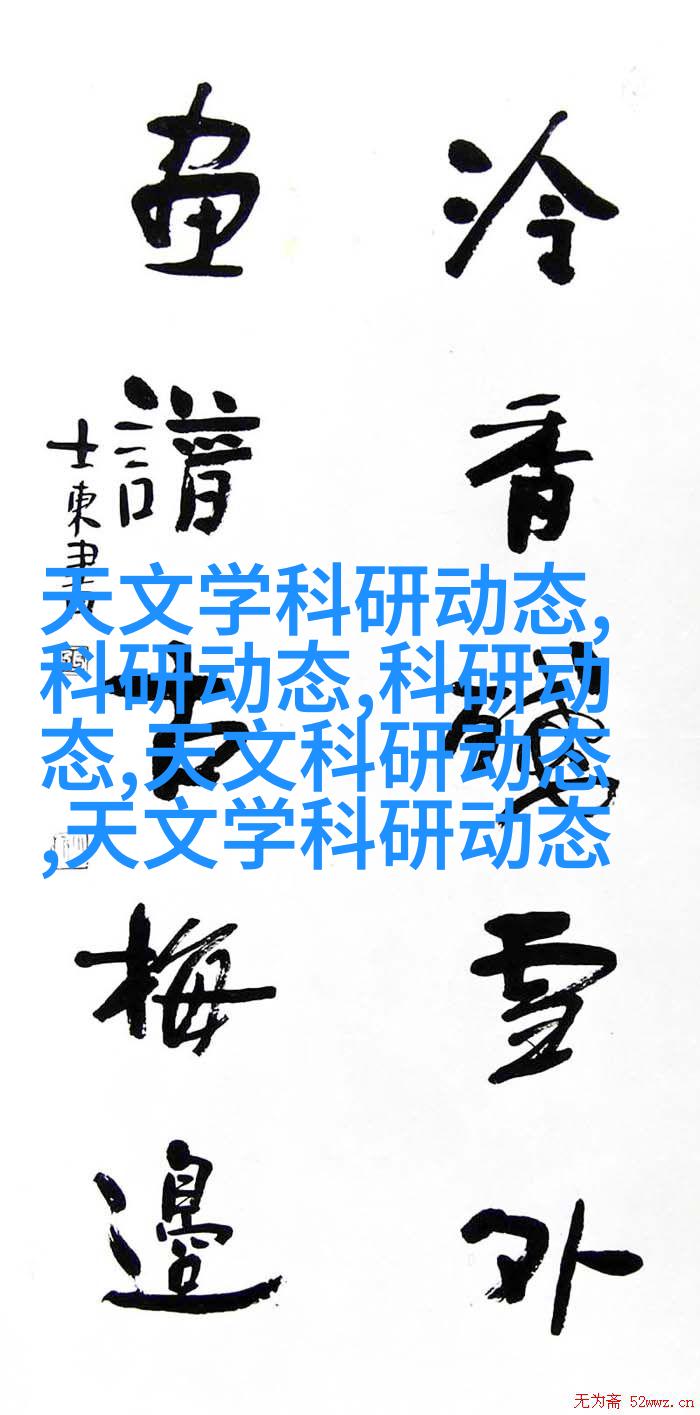 冷香雪外
畫譜古梅邊
士東書
天文学科研动态,
科研动态,科研动
态,天文科研动态
,天文学科研动态
无为斋 52wwz.cn